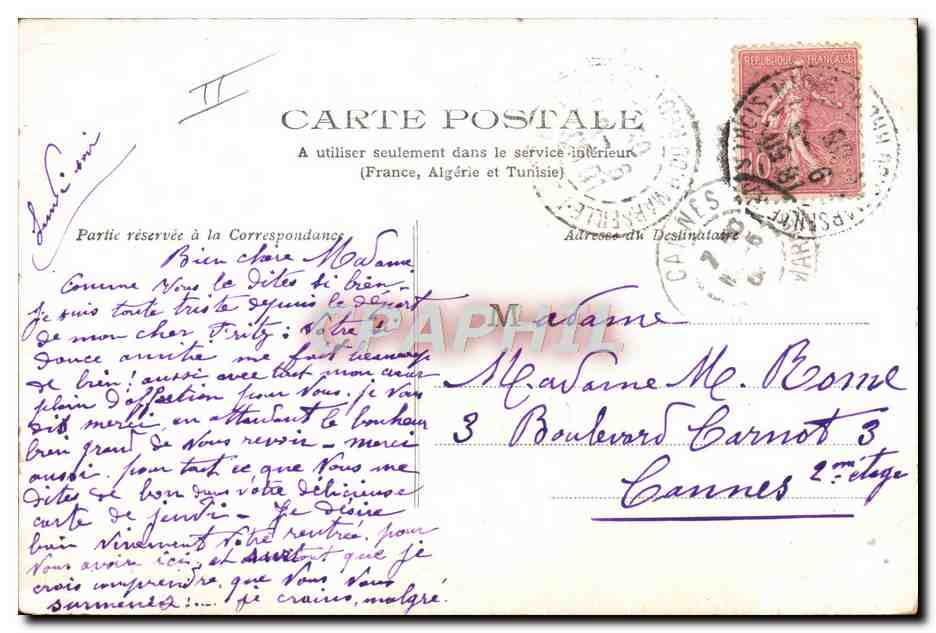 II
CARTE POSTALE
A utiliser seulement dans le service intérieur
(France, Algérie et Tunisie)
Partie réservée à la Correspondance
Adresse du Destinataire
REPUBLIQUE FRANÇAISE
10
MARSEILLE
CANNES
CPAPHIL
soir
Bien chère Madame
Comme Vous le dites si bien-
je suis toute triste depuis le départ
de mon cher Fritz: Votre si
douce amitié me fait beaucoup
de bien! aussi avec tout mon cœur
plein d'affection pour Vous. je Vous
dis merci, en attendant le bonheur
bien grand de Vous revoir - merci
aussi. pour tout ce que Vous me
dites de bon dans vôtre délicieuse
carte de jeudi - Je désire
bien vivement Vôtre rentrée, pour
Vous avoire ici, et surtout que je
crois comprendre, que Vous Vous
surmenez!.... je crains, malgré.
Madame
Madame M. Rome
3 Boulevard Carnot 3
Cannes 2me étage